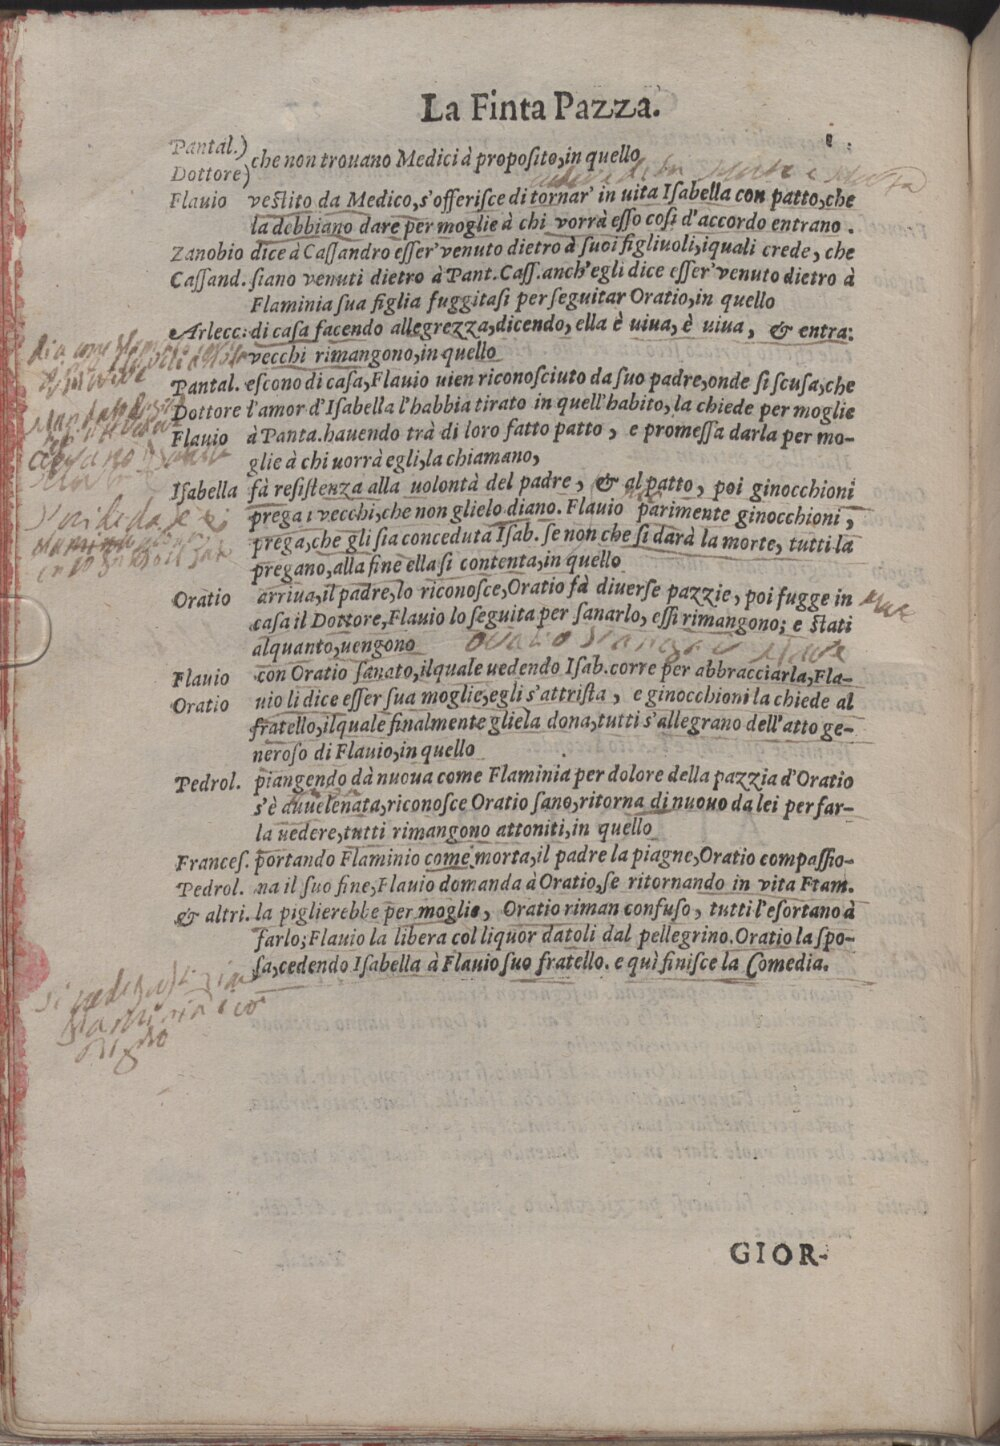 La Finta Pazza.
Pantal.) che non trouano Medici à proposito, in quello
Dottore)
Flauio vestito da Medico, s'offerisce di tornar' in uita Isabella con patto, che
la debbiano dare per moglie à chi vorrà esso così d'accordo entrano.
Zanobio dice à Cassandro esser' venuto dietro à suoi figliuoli, iquali crede, che
Cassand. siano venuti dietro à Pant. Cass. anch'egli dice esser' venuto dietro à
Flaminia sua figlia fuggitasi per seguitar Oratio, in quello
Arlecc: di casa facendo allegrezza, dicendo, ella è uiua, è uiua, & entra:
vecchi rimangono, in quello
Pantal. escono di casa, Flauio uien riconosciuto da suo padre, onde si scusa, che
Dottore l'amor d'Isabella l'habbia tirato in quell'habito, la chiede per moglie
Flauio à Panta. hauendo trà di loro fatto patto, e promessa darla per mo-
glie à chi uorrà egli, la chiamano,
Isabella fà resistenza alla uolontà del padre, & al patto, poi ginocchioni
prega i vecchi, che non glielo diano. Flauio parimente ginocchioni,
prega, che gli sia conceduta Isab. se non che si darà la morte, tutti la
pregano, alla fine ella si contenta, in quello
Oratio arriua, il padre, lo riconosce, Oratio fà diuerse pazzie, poi fugge in
casa il Dottore, Flauio lo seguita per sanarlo, essi rimangono; e stati
alquanto, uengono
Flauio con Oratio sanato, ilquale uedendo Isab. corre per abbracciarla, Fla-
Oratio uio li dice esser sua moglie, egli s'attrista, e ginocchioni la chiede al
fratello, ilquale finalmente gliela dona, tutti s'allegrano dell'atto ge-
neroso di Flauio, in quello
Pedrol. piangendo dà nuoua come Flaminia per dolore della pazzia d'Oratio
s'è auuelenata, riconosce Oratio sano, ritorna di nuouo da lei per far-
la uedere, tutti rimangono attoniti, in quello
Frances. portando Flaminio come morta, il padre la piagne, Oratio compassio-
Pedrol. na il suo fine, Flauio domanda à Oratio, se ritornando in vita Flam.
& altri. la piglierebbe per moglie, Oratio riman confuso, tutti l'esortano à
farlo; Flauio la libera col liquor datoli dal pellegrino. Oratio la spo-
sa, cedendo Isabella à Flauio suo fratello. e quì finisce la Comedia.
GIOR-